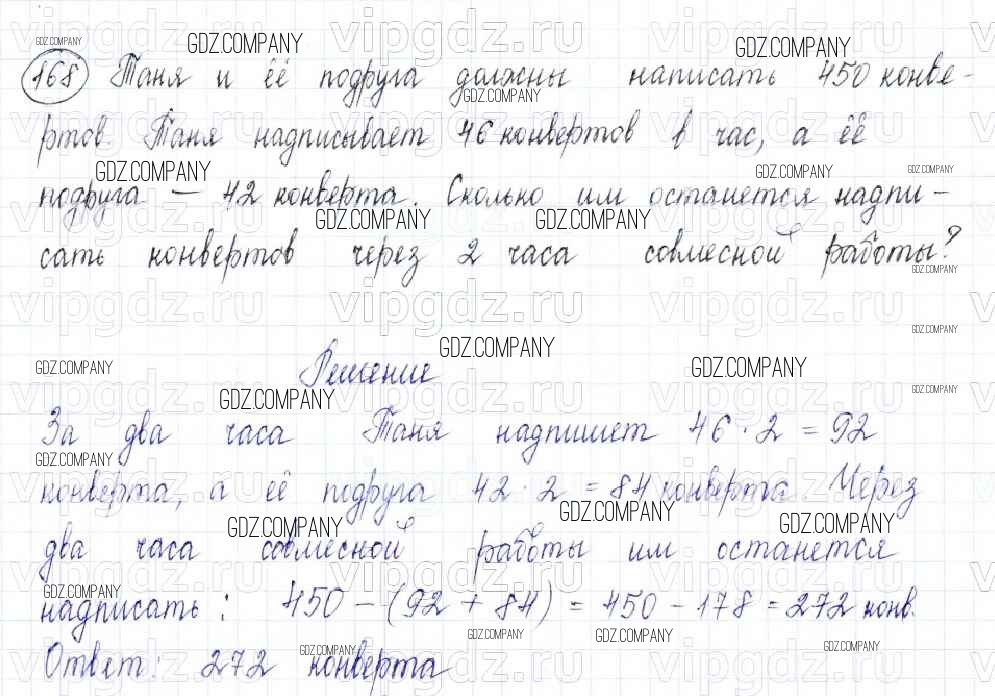 168 Таня и её подруга должны написать 450 конве-
ртов. Таня надписывает 46 конвертов в час, а её
подруга — 42 конверта. Сколько им останется надпи-
сать конвертов через 2 часа совмесной работы?
Решение
За два часа Таня надпишет 46 · 2 = 92
конверта, а её подруга 42 · 2 = 84 конверта. Через
два часа совмесной работы им останется
надписать: 450 - (92 + 84) = 450 - 178 = 272 конв.
Ответ: 272 конверта